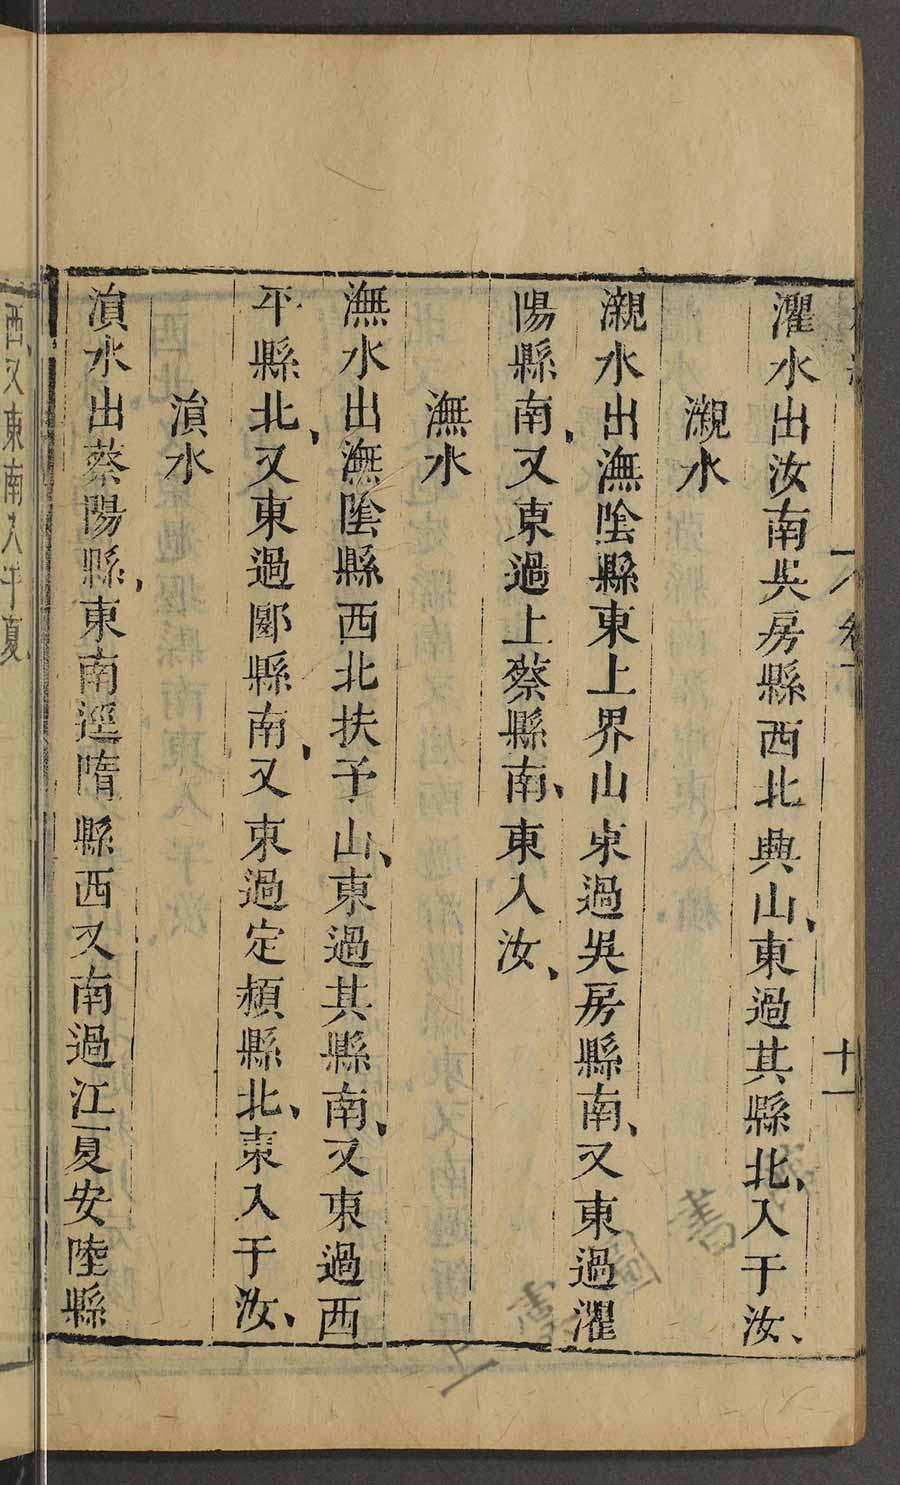 灈水出汝南吳房縣西北興山、東過其縣北、入于汝、
瀙水
瀙水出潕陰縣東上界山東過吳房縣南、又東過灈
陽縣南、又東過上蔡縣南、東入汝、
潕水
潕水出潕陰縣西北扶予山、東過其縣南、又東過西
平縣北、又東過郾縣南、又東過定潁縣北、東入于汝、
溳水
溳水出蔡陽縣、東南逕隋縣西又南過江夏安陸縣
西、又東南入于夏、
卷下
十一